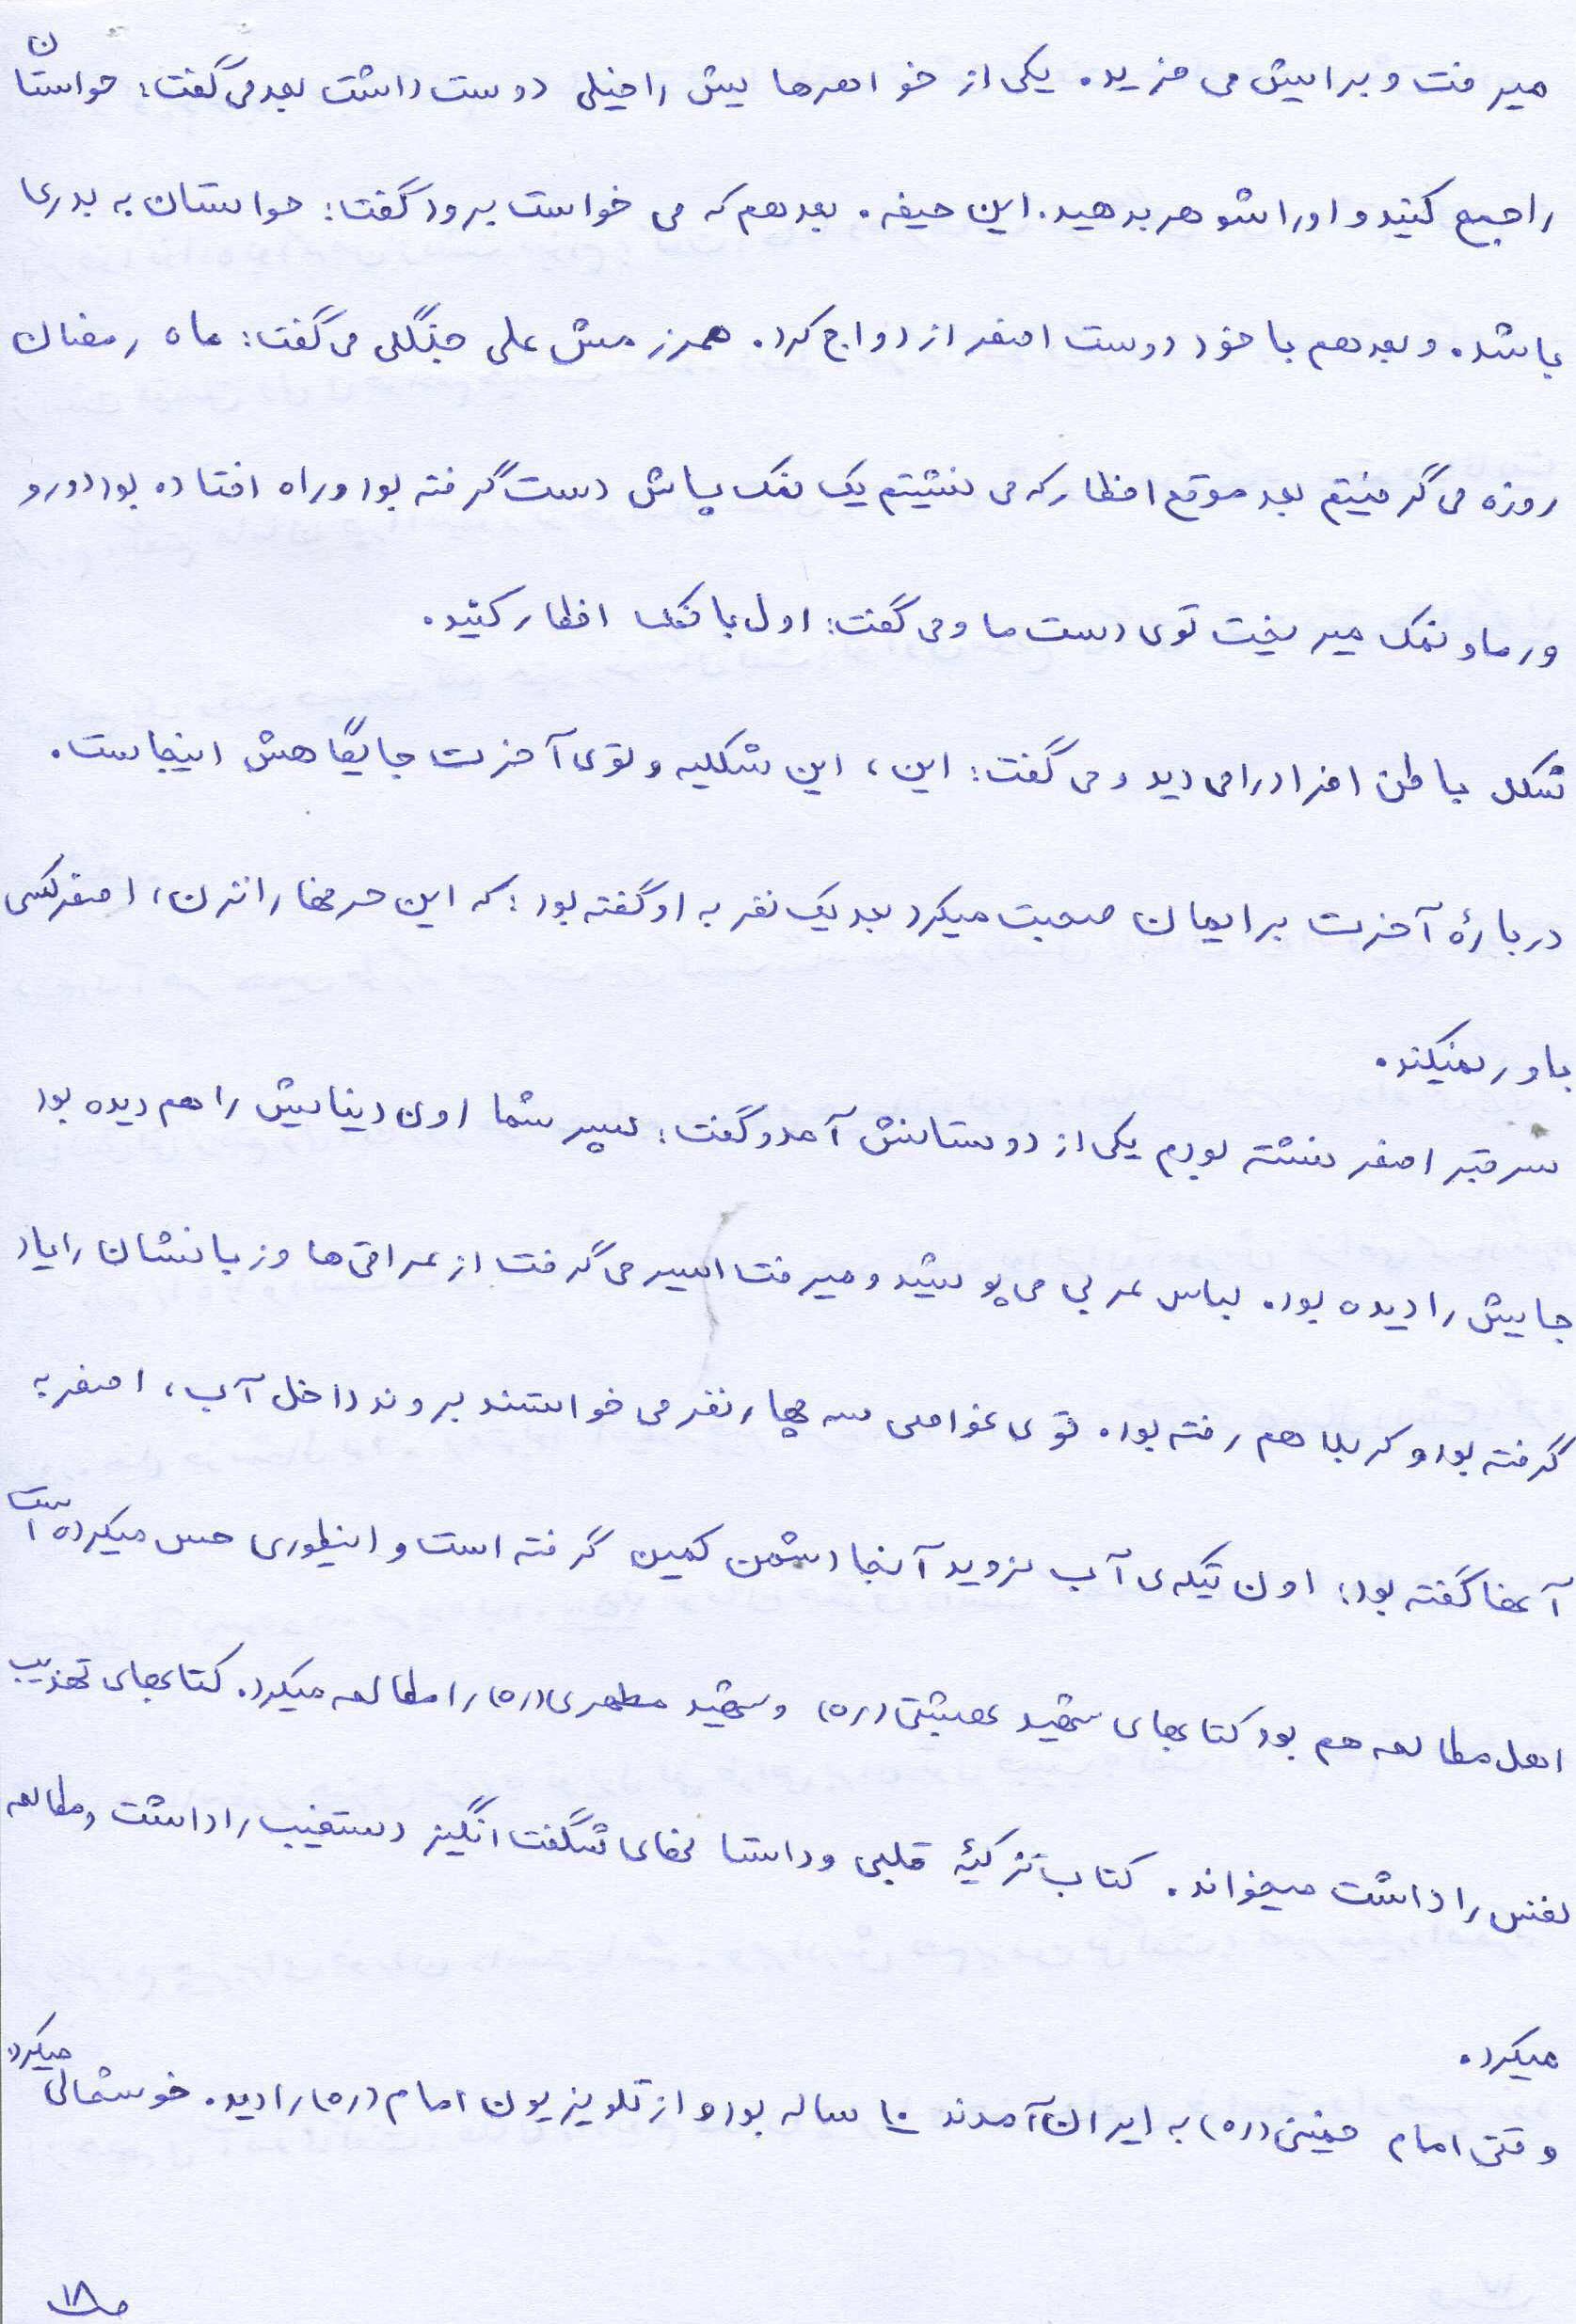 میرفت و برایش می خرید. یکی از خواهرهایش را خیلی دوست داشت بعد می گفت: حواستان
را جمع کنید و او را شوهر بدهید. این حیفه. بعد هم که می خواست برود گفت: حواستان به بدری
باشد. و بعد هم با خود دوست اصغر ازدواج کرد. همرزمش علی جنگلی می گفت: ماه رمضان
روزه می گرفتیم بعد موقع افطار که می نشستیم یک نمک پاش دست گرفته بود و راه افتاده بود دور و
ور ما و نمک میریخت توی دست ما و می گفت: اول با نمک افطار کنید.
شکل باطن افراد را می دید و می گفت: این، این شکلیه و توی آخرت جایگاهش اینجاست.
دربارۀ آخرت برایمان صحبت میکرد بعد یک نفر به او گفته بود: که این حرفها را نزن، اصغر کسی
باور نمیکند.
سر قبر اصغر نشسته بودم یکی از دوستانش آمد و گفت: پسر شما اون دنیایش را هم دیده بود
جایش را دیده بود. لباس عربی می پوشید و میرفت اسیر می گرفت از عراقی ها و زبانشان را یاد
گرفته بود و کربلا هم رفته بود. توی غواصی سه چهار نفر می خواستند بروند داخل آب، اصغر به
آنها گفته بود: اون تیکه ی آب نروید آنجا دشمن کمین گرفته است و اینطوری حس میکرده است
اهل مطالعه هم بود کتابهای شهید بهشتی (ره) و شهید مطهری (ره) را مطالعه میکرد. کتابهای تهذیب
نفس را داشت میخواند. کتاب تزکیۀ قلبی و داستانهای شگفت انگیز دستغیب را داشت و مطالعه
میکرد.
وقتی امام خمینی (ره) به ایران آمدند ۱۰ ساله بود و از تلویزیون امام (ره) را دید. خوشحالی میکرد.
ص ۱۸